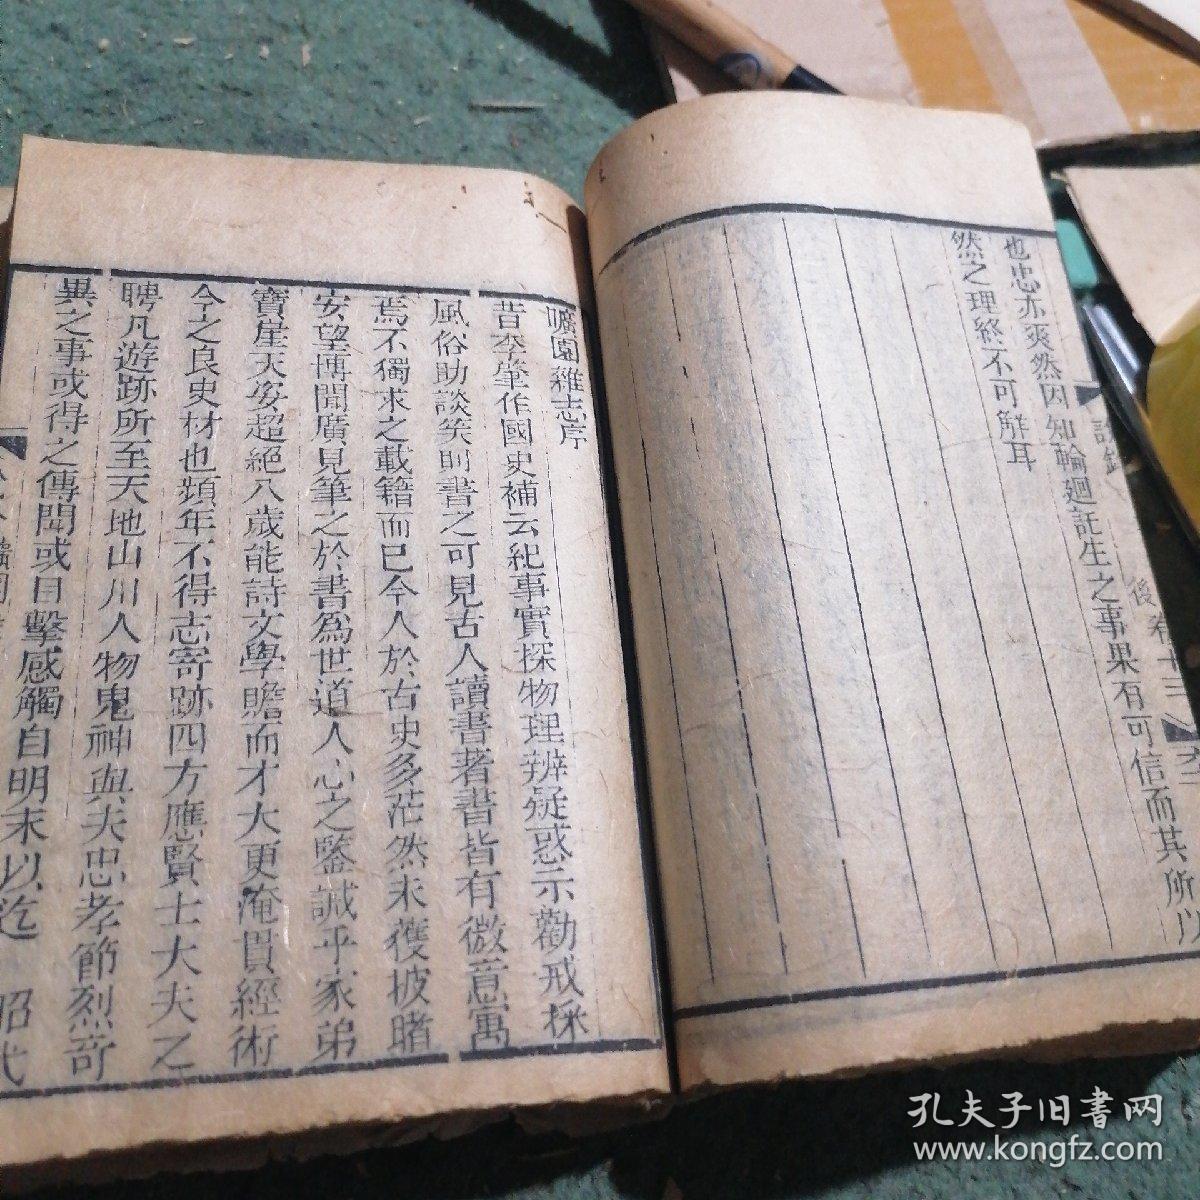 也忠亦爽然因知輪廻託生之事果有可信而其所以
然之理終不可解耳
說鈴
後
卷十三
曠園雜志序
昔李肇作國史補云紀事實探物理辨疑惑示勸戒採
風俗助談笑則書之可見古人讀書著書皆有微意寓
焉不獨求之載籍而已今人於古史多茫然未獲披睹
安望博聞廣見筆之於書為世道人心之鑒誡乎家弟
寶崖天姿超絕八歲能詩文學贍而才大更淹貫經術
今之良史材也頻年不得志寄跡四方應賢士大夫之
聘凡遊跡所至天地山川人物鬼神與夫忠孝節烈奇
異之事或得之傳聞或目擊感觸自明末以迄 昭代
孔夫子旧書网
www.kongfz.com